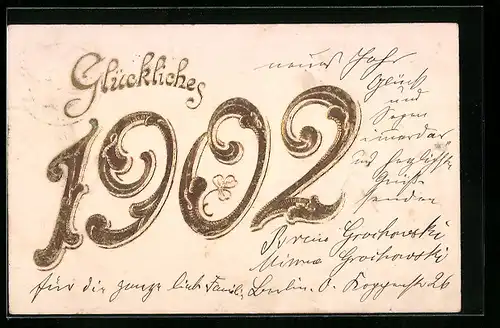 Glückliches
1902
neues Jahr
Glück
und
Segen
immerdar
und herzlichste
Grüße
senden
Bruno Grochowski
Minna Grochowski
für die ganze lieb. Famili Berlin. O. Koppenstr 26